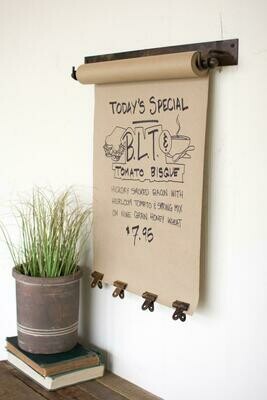 TODAY'S SPECIAL
B.L.T. &
TOMATO BISQUE
HICKORY SMOKED BACON WITH
HEIRLOOM TOMATO & SPRING MIX
ON NINE GRAIN HONEY WHEAT
$7.95